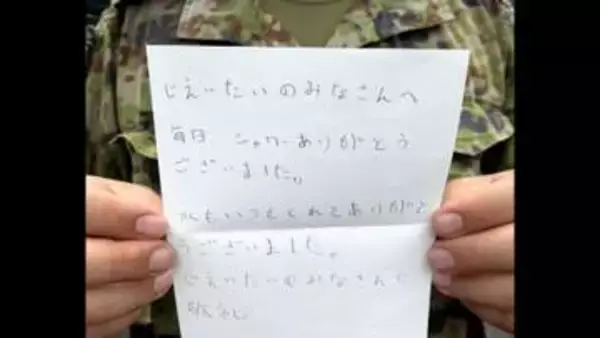 じえいたいのみなさんへ
毎日 シャワーありがとう
ございました。
水もいつもくれてありがと
うございました。
じえいたいのみなさんに